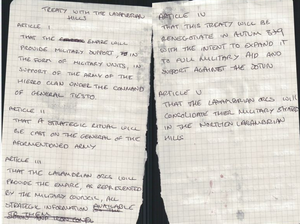 TREATY WITH THE LASAMBRIAN
HILLS
ARTICLE I
THAT THE EMPIRE WILL
PROVIDE MILITARY SUPPORT IN
THE FORM OF MILITARY UNITS, IN
SUPPORT OF THE ARMY OF THE
MICRO CLAN UNDER THE COMMAND
OF GENERAL TIESTO.
ARTICLE II
THAT A STRATEGIC RITUAL WILL
BE CAST ON THE GENERAL OF THE
AFORMENTIONED ARMY
ARTICLE III
THAT THE LASAMBRIAN ORCS WILL
PROVIDE THE EMPIRE, AS REPRESENTED
BY THE MILITARY COUNCIL, ALL
STRATEGIC INFORMATION AVAILABLE
ARTICLE IV
THAT THIS TREATY WILL BE
RENEGOTIATE IN AUTUMN
WITH THE INTENT TO EXPAND IT
TO FULL MILITARY AID AND
SUPPORT AGAINST THE JOTUN
ARTICLE V
THAT THE LASAMBRIAN ORCS WILL
CONSOLIDATE THEIR MILITARY
IN THE NORTHERN LASAMBRIAN
HILLS